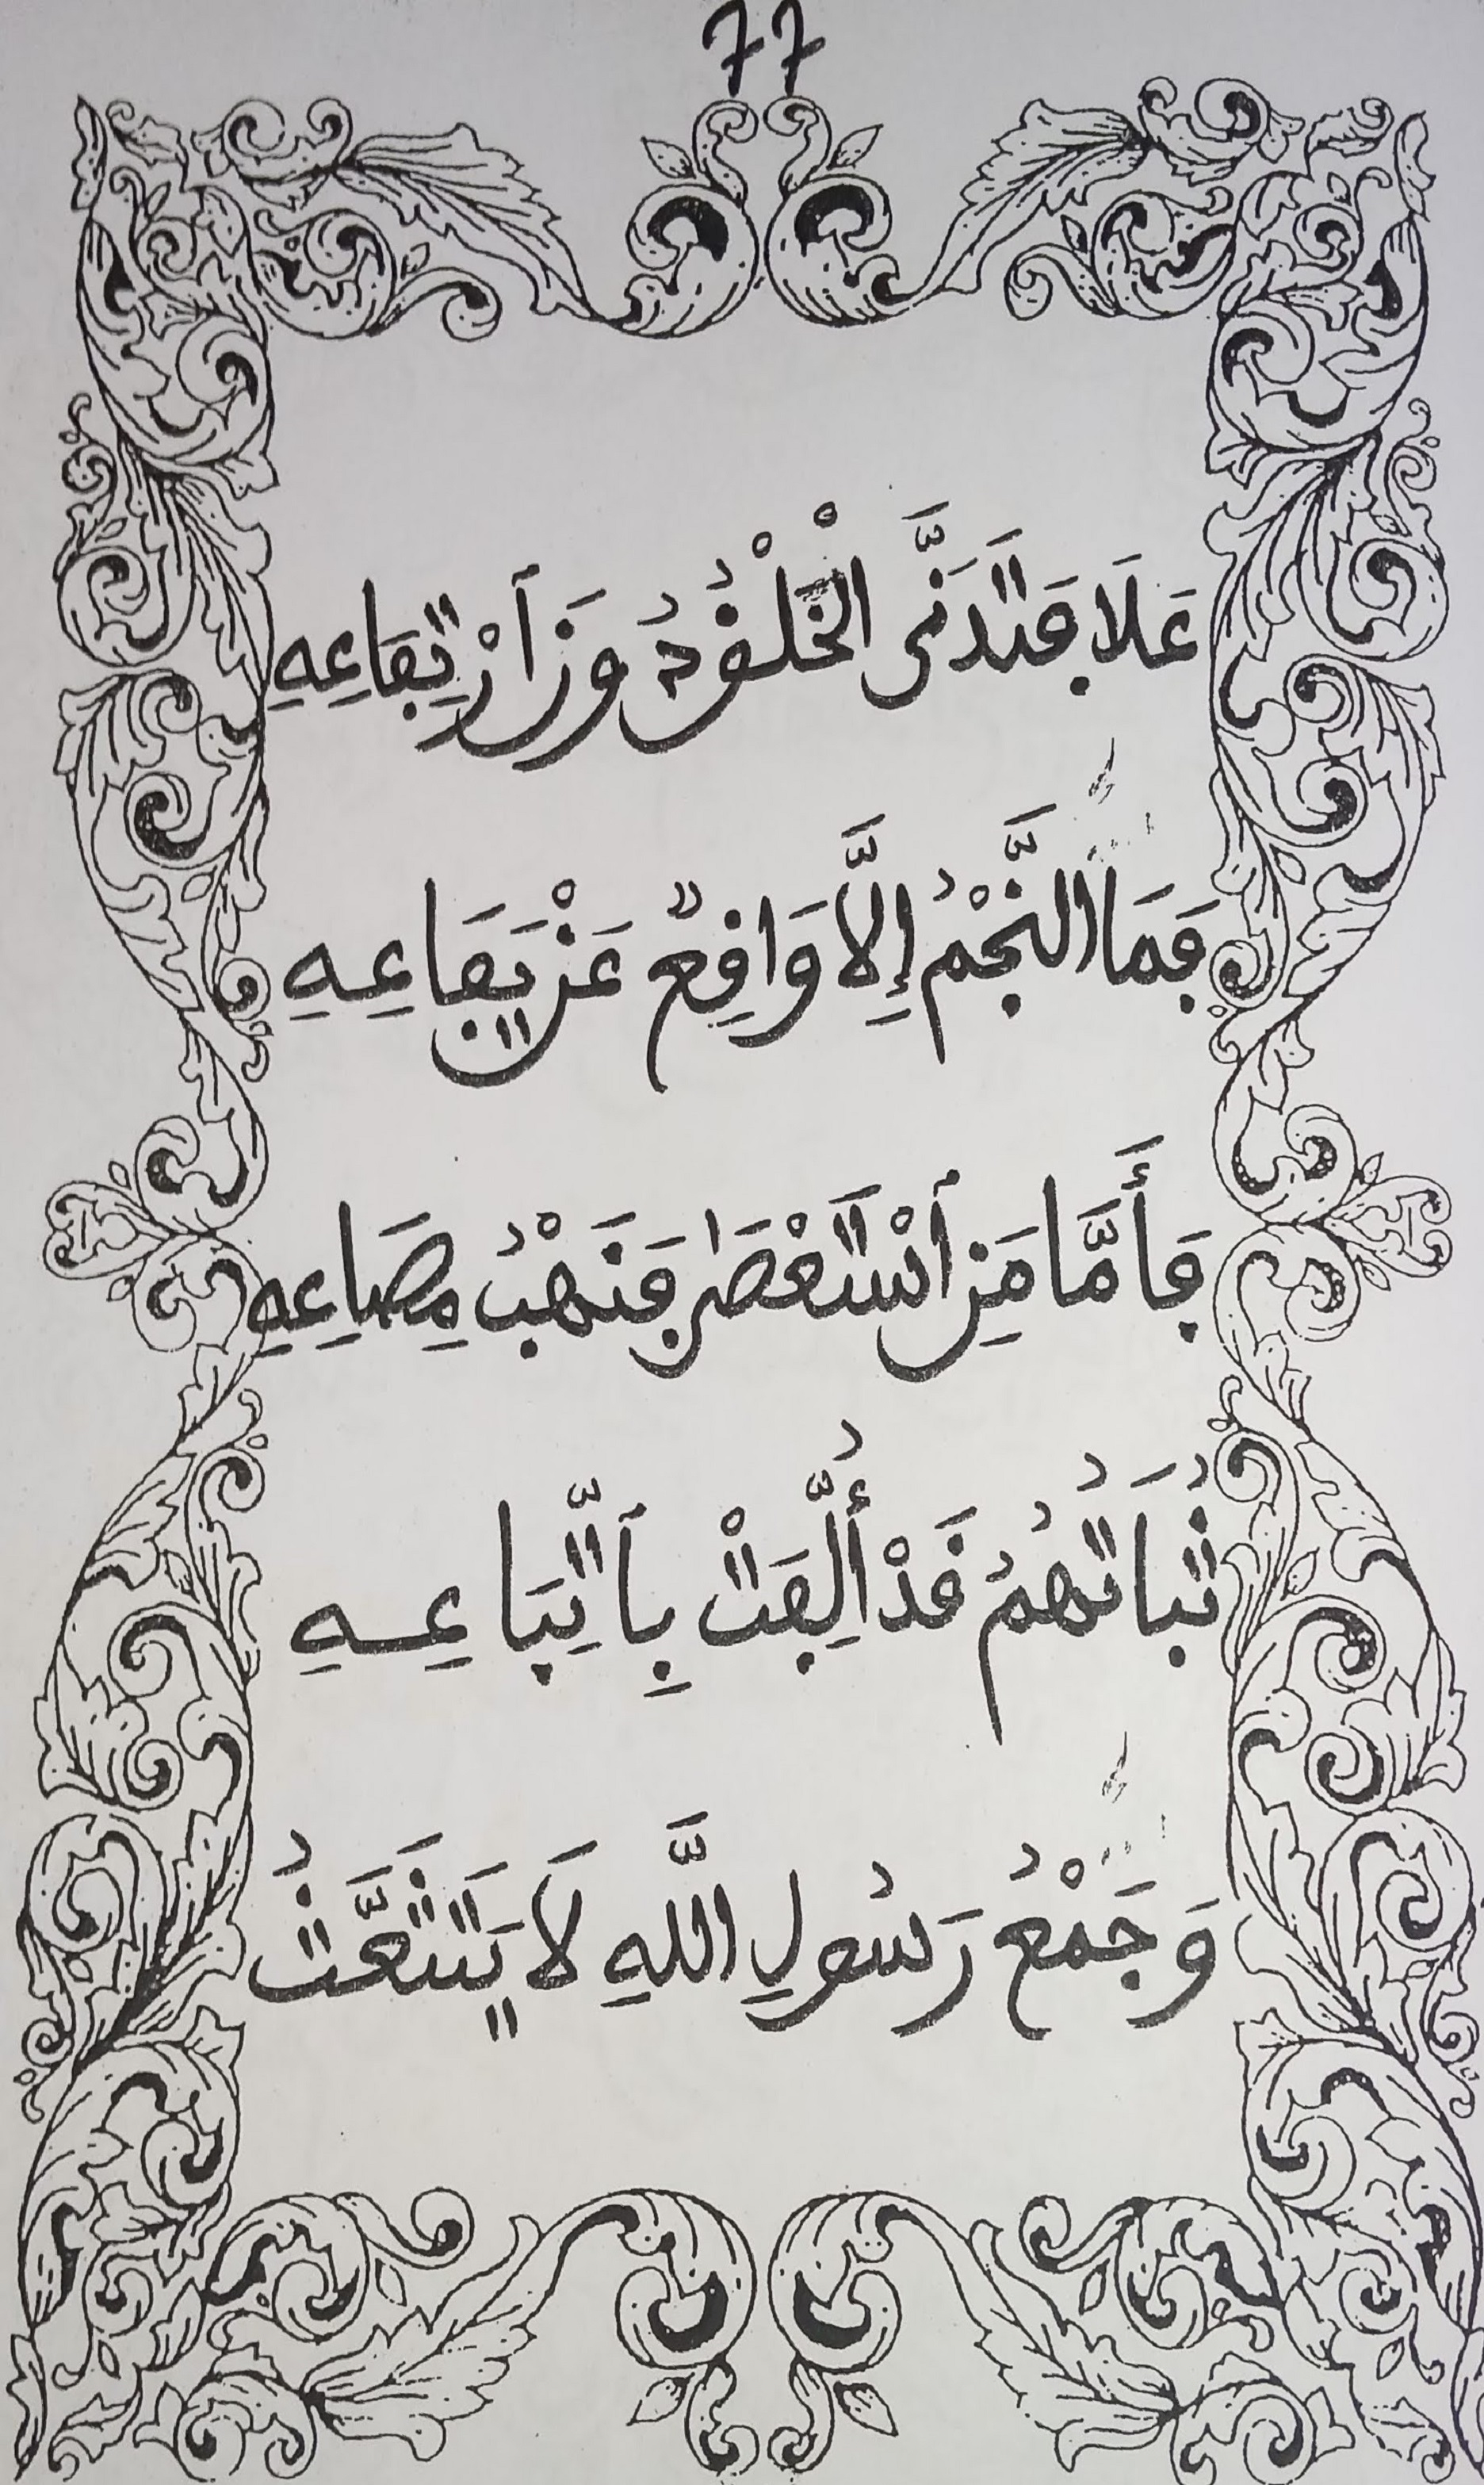 77
عَلَا فَتَدَنَّى الْخَلْقُ دُونَ ارْتِفَاعِهِ
فَمَا النَّجْمُ إِلَّا وَاقِعٌ عَنْ يَفَاعِهِ
فَأَمَّا مَنِ اسْتَعْصَى فَنَهْبُ مِصَاعِهِ
ثُبَاتُهُمُ قَدْ أُلِّفَتْ بِاتِّبَاعِهِ
وَجَمْعُ رَسُولِ اللَّهِ لَا يَتَشَعَّثُ